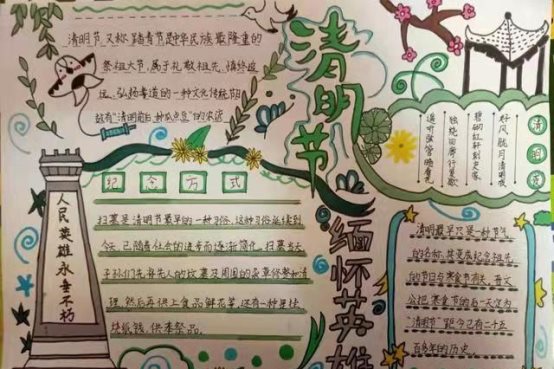 清明节,又称踏青节,是中华民族最隆重的
祭祖大节,属于礼敬祖先、慎终追
远、弘扬孝道的一种文化传统节
故有“清明前后,种瓜点豆”的农谚
清明节
缅怀英雄
人民英雄永垂不朽
纪念方式
扫墓是清明节最早的一种习俗,这种习俗延续到
今天,已随着社会的进步而逐渐简化。扫墓当天
子孙们先将先人的坟墓及周围的杂草修整和清
理,然后再供上食品鲜花等,还有一种是挂
烧纸钱,供奉祭品。
好风胧月清明夜
碧砌红轩刺史家
独绕回廊行复歇
遥听弦管暗看花
清明最早只是一种节气
的名称,其变成纪念祖先
的节日与寒食节有关。晋文
公把寒食节的后一天定为
“清明节”距今已有二千五
百多年的历史。